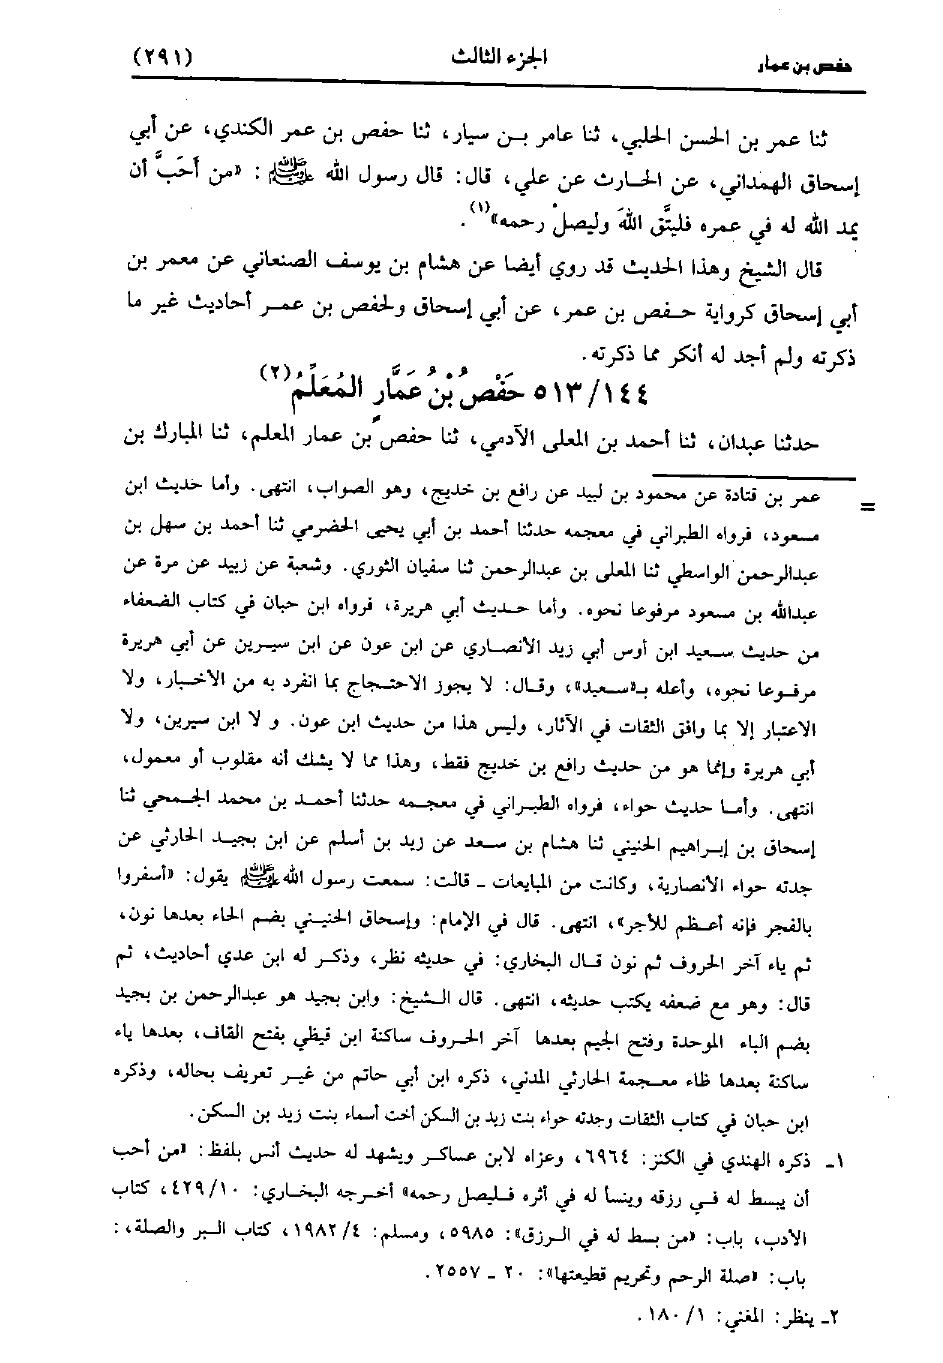 حفص بن عمار الجزء الثالث (٢٩١)
ثنا عمر بن الحسن الحلبي، ثنا عامر بـن سيار، ثنا حفص بن عمر الكندي، عن أبي
إسحاق الهمداني، عن الحارث عن علي، قال: قال رسول الله ﷺ: «من أَحَبَّ أن
يمد الله له في عمره فليتَّق اللهَ وليصلْ رحمه»(١).
قال الشيخ وهذا الحديث قد روي أيضا عن هشام بن يوسف الصنعاني عن معمر بن
أبي إسحاق كرواية حـفص بن عمر، عن أبي إسحاق ولحفص بن عمـر أحاديث غير ما
ذكرته ولم أجد له أنكر مما ذكرته.
٥١٣/١٤٤ حَفْصُ بْنُ عَمَّارٍ المُعَلِّمُ(٢)
حدثنا عبدان، ثنا أحمد بن المعلى الآدمي، ثنا حفص بن عمار المعلم، ثنا المبارك بن
= عمر بن قتادة عن محمود بن لبيد عن رافع بن خديج، وهو الصواب، انتهى. وأما حديث ابن
مسعود، فرواه الطبراني في معجمه حدثنا أحمد بن أبي يحيى الحضرمي ثنا أحمد بن سهل بن
عبدالرحمن الواسطي ثنا المعلى بن عبدالرحمن ثنا سفيان الثوري. وشعبة عن زبيد عن مرة عن
عبدالله بن مسعود مرفوعا نحوه. وأما حـديث أبي هريرة، فرواه ابن حبان في كتاب الضعفاء
من حديث سـعيد ابن أوس أبي زيد الانصـاري عن ابن عون عن ابن سيـرين عن أبي هريرة
مرفـوعا نحوه، وأعله بـ«سـعيد»، وقـال: لا يجوز الاحتـجاج بما انفرد به من الأخبـار، ولا
الاعتبار إلا بما وافق الثقات في الآثار، وليس هذا من حديث ابن عون. و لا ابن سيرين، ولا
أبي هريرة وإنما هو من حديث رافع بن خديج فقط، وهذا مما لا يشك أنه مقلوب أو معمول،
انتهى. وأمـا حديث حواء، فرواه الطبـراني في معجـمه حدثنا أحمـد بن محمد الجـمحي ثنا
إسحاق بن إبـراهيم الحنيني ثنا هشام بن سـعد عن زيد بن أسلم عن ابن بجيد الحارثي عن
جدته حواء الأنصارية، وكانت من المبايعات ـ قالت: سمعت رسول الله ﷺ يقول: «أسفروا
بالفجر فإنه أعـظم للأجر»، انتهى. قال في الإمام: وإسحاق الحنيـني بضم الحاء بعدها نون،
ثم ياء آخر الحروف ثم نون قـال البخاري: في حديثه نظر، وذكـر له ابن عدي أحاديث، ثم
قال: وهو مع ضعفه يكتب حديثه، انتهى. قال الـشيخ: وابن بجيد هو عبدالرحمن بن بجيد
بضم الباء الموحدة وفتح الجيم بعدها آخر الحـروف ساكنة ابن قيظي بفتح القاف، بعدها ياء
ساكنة بعدها ظاء معـجمة الحارثي المدني، ذكره ابن أبي حاتم من غيـر تعريف بحاله، وذكره
ابن حبان في كتاب الثقات وجدته حواء بنت زيد بن السكن أخت أسماء بنت زيد بن السكن.
١ـ ذكره الهندي في الكنز: ٦٩٦٤، وعزاه لابن عساكر ويشهد له حديث أنس بلفظ: «من أحب
أن يبسط له فـي رزقه وينسأ له في أثره فـليصل رحمه» أخـرجه البخاري: ٤٢٩/١٠، كتاب
الأدب، باب: «من بسط له في الـرزق»: ٥٩٨٥، ومسلم: ١٩٨٢/٤، كتاب البر والصلة، :
باب: «صلة الرحم وتحريم قطيعتها»: ٢٠ ـ ٢٥٥٧.
٢ـ ينظر: المغني: ١٨٠/١.